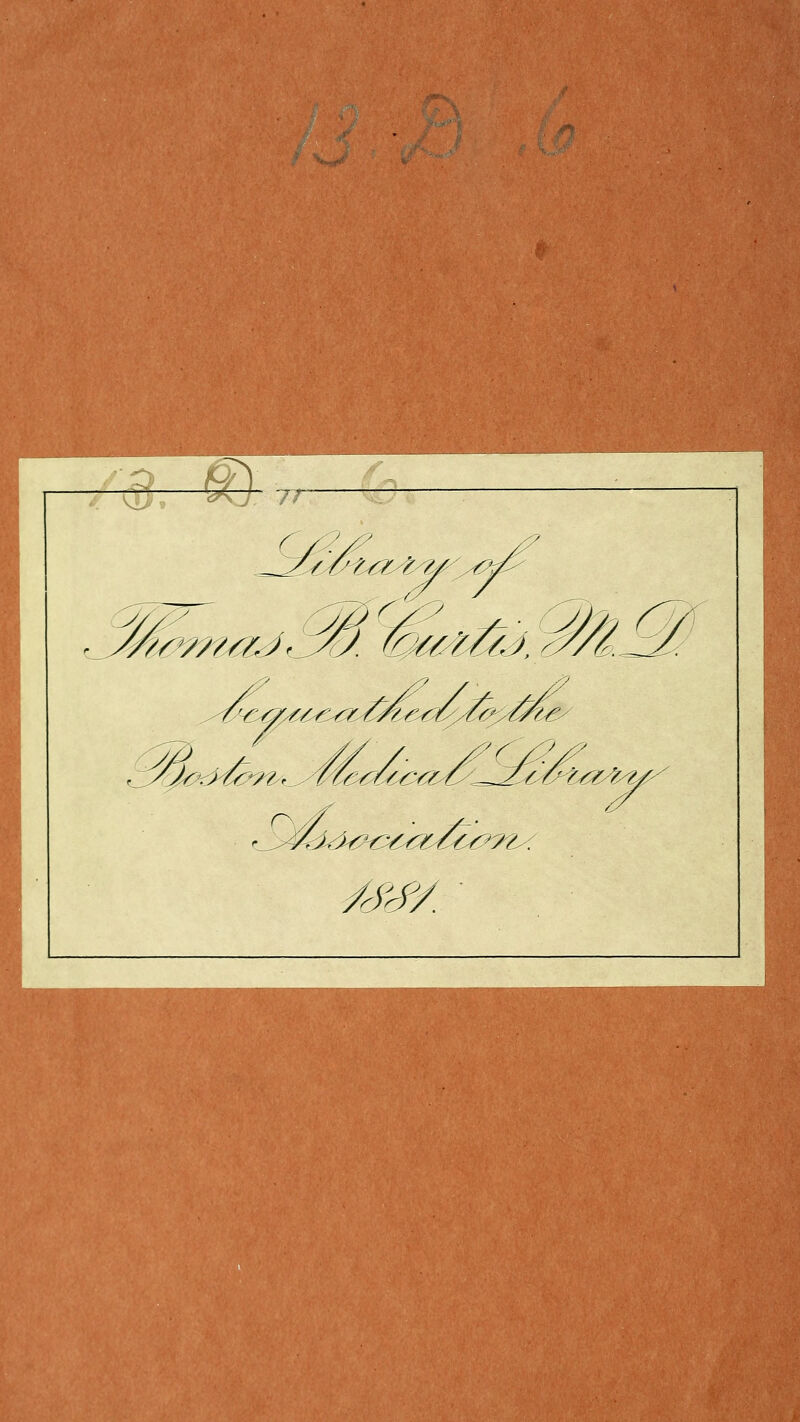 13. D. 6
13. D. 6.
Library of
Thomas B. Curtis, M.D.
bequeathed to the
Boston Medical Library
Association.
1881.